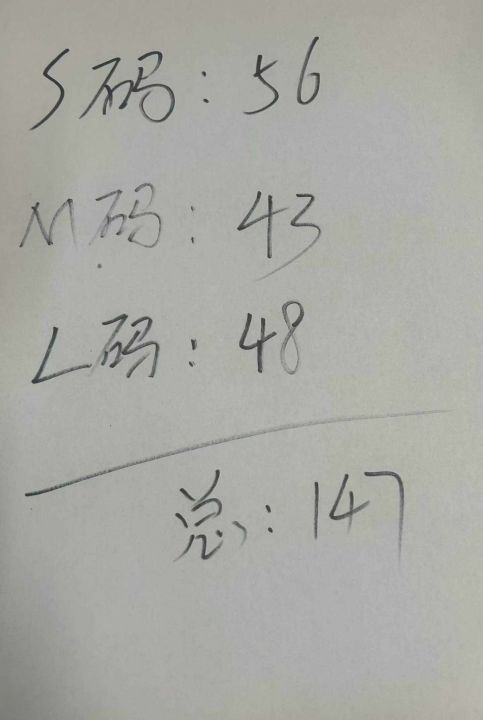 S码：56
M码：43
L码：48
总：147